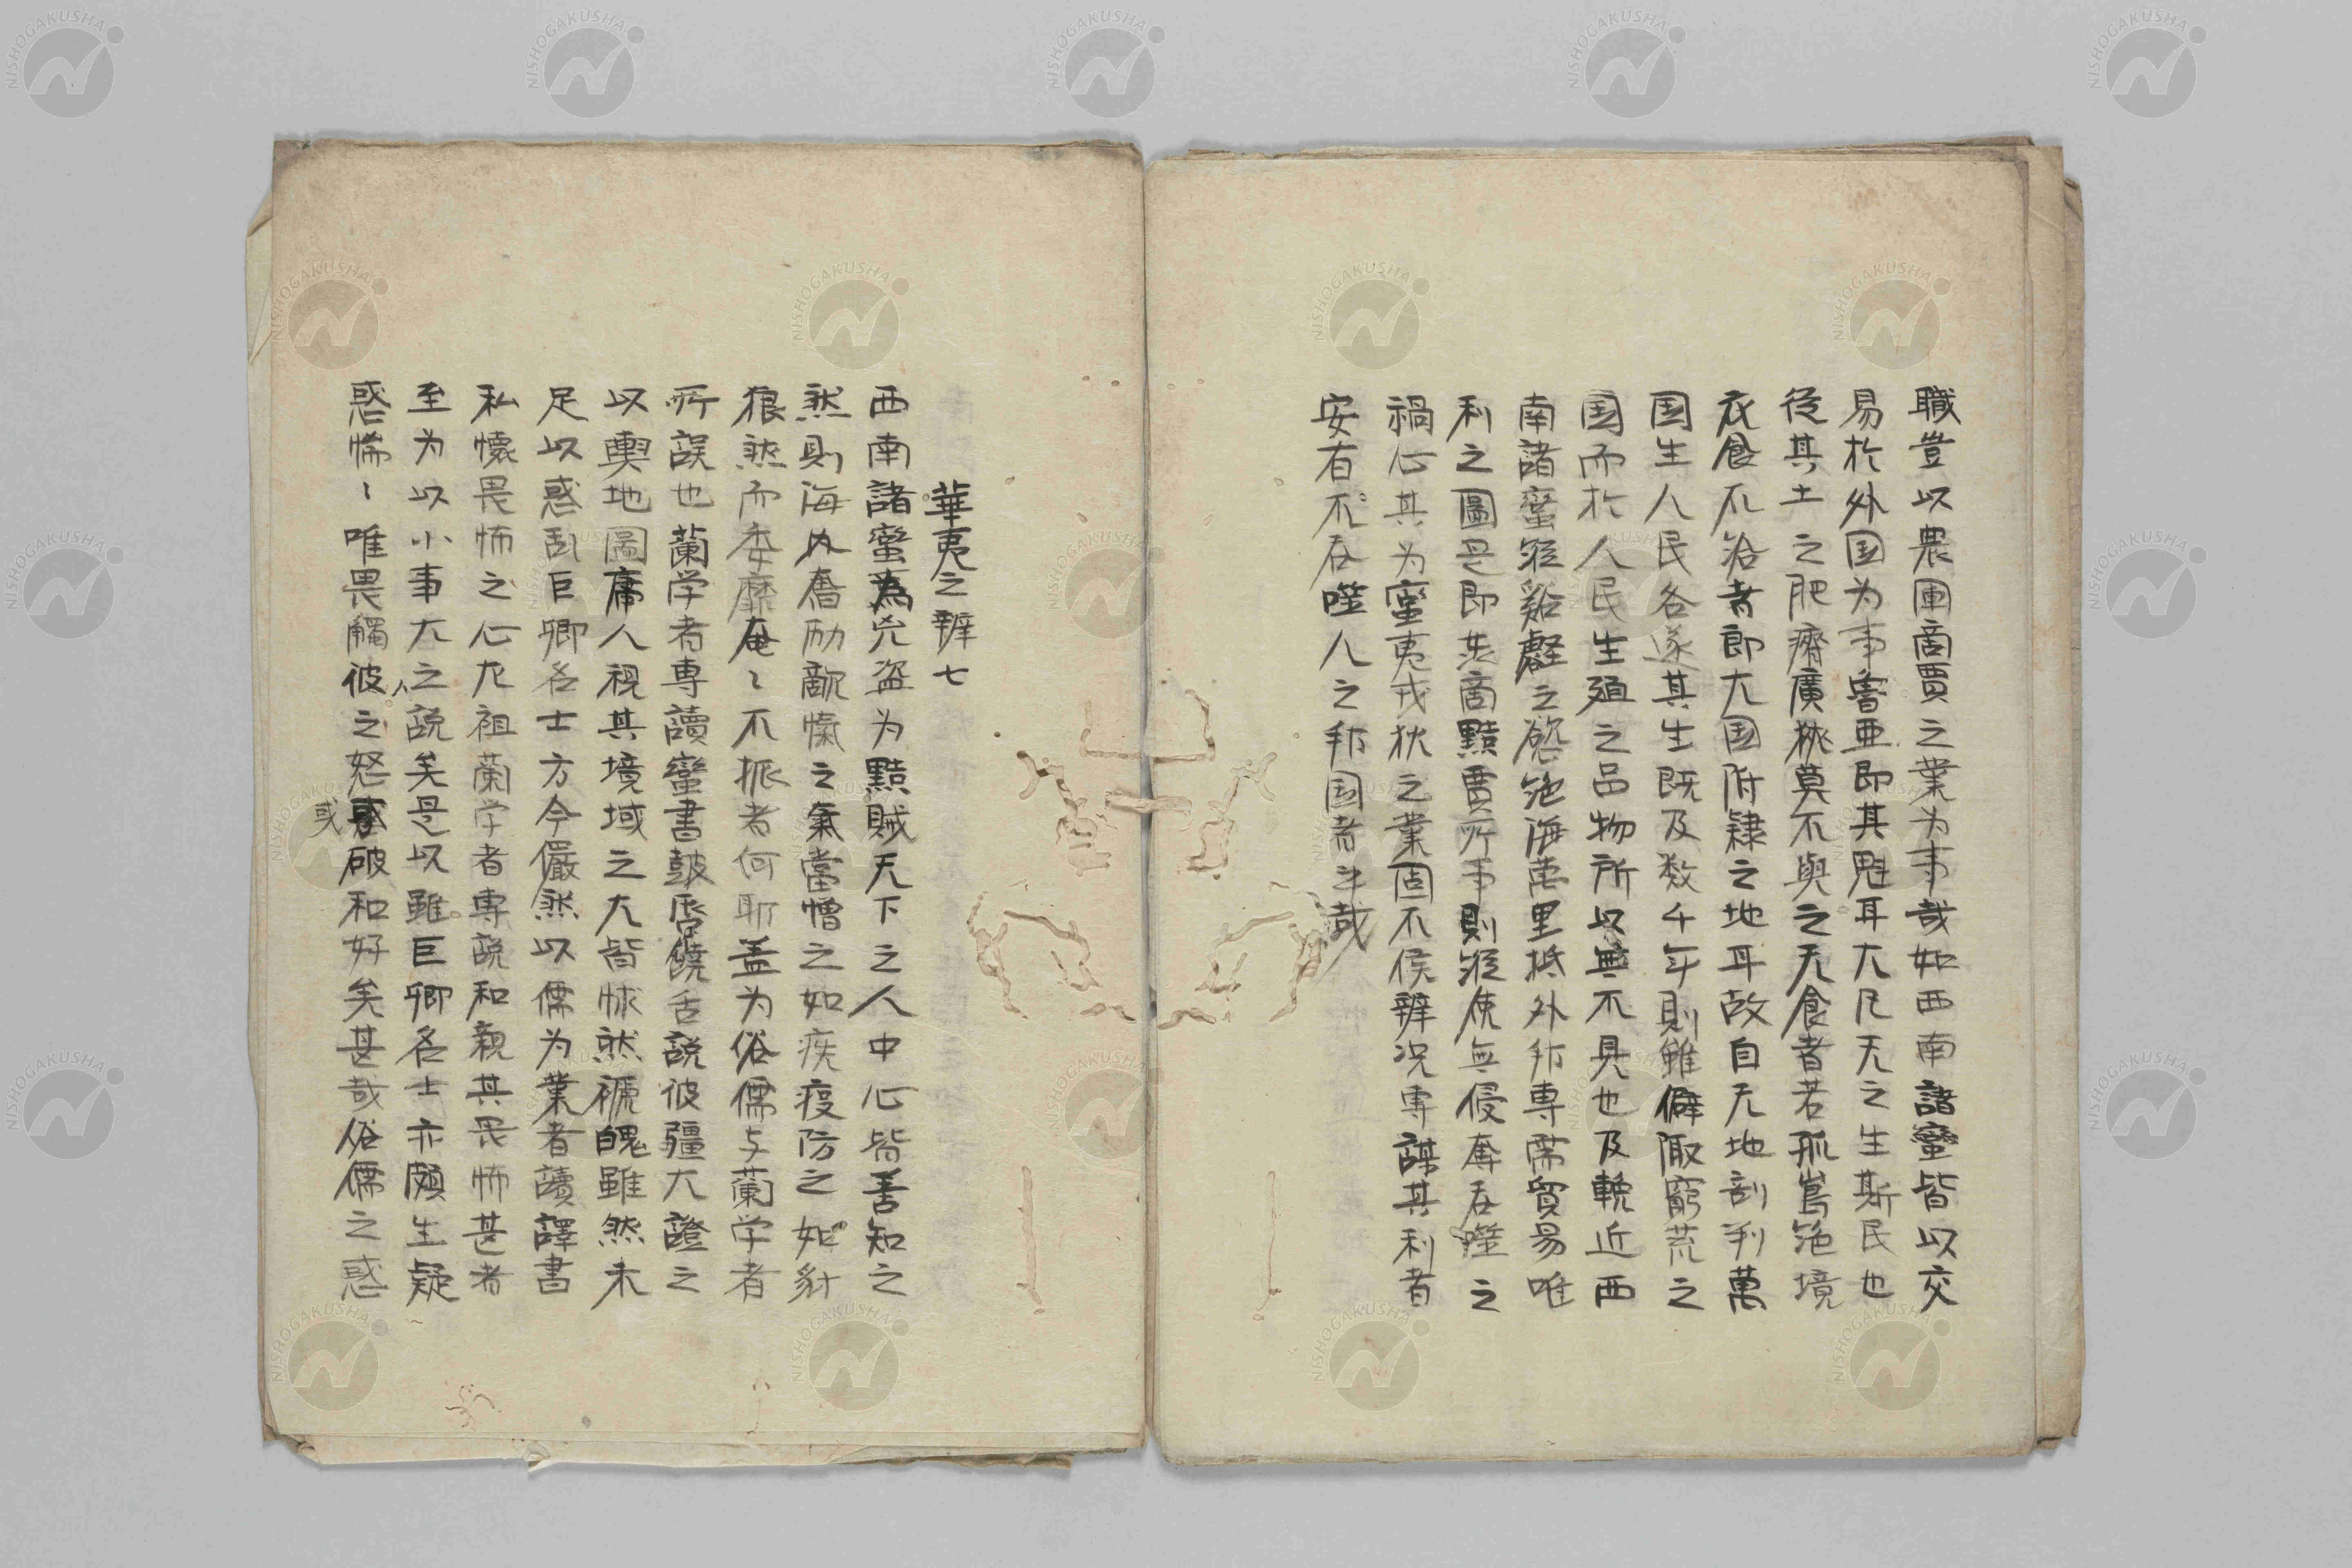 職豈以農圃商賈之業为事哉如西南諸蠻皆以交
易於外国为事魯亜即其魁耳大凡天之生斯民也
従其土之肥瘠廣狹莫不與之天食者若孤嶌絶境
衣食不給者即大国附隸之地耳故自天地剖判萬
国生人民各遂其生既及数千年則雖僻陬窮荒之
国而於人民生殖之品物所以無不具也及輓近西
南諸蠻縱谿壑之慾絶海萬里抵外邦専需貿易唯
利之圖是即共商黠賈所事則縱使無侵奪呑噬之
禍心其为蠻夷戎狄之業固不俟辨况専謀其利者
安有不呑噬人之邦国者乎哉
華夷之辨七
西南諸蠻為兇盗为黠賊天下之人中心皆善知之
然則海内奮励敵愾之氣當憎之如疾疫防之如豺
狼然而委靡奄〻不振者何耶盖为俗儒与蘭学者
所誤也蘭学者専讀蠻書鼓唇饒舌説彼疆大證之
以輿地圖庸人視其境域之大皆怵然褫魄雖然未
足以惑乱巨卿名士方今儼然以儒为業者讀譯書
私懐畏怖之心左祖蘭学者専説和親其畏怖甚者
至为以小事大之説矣是以雖巨卿名士亦頗生疑
人
惑惴〻唯畏觸彼之怒破和好矣甚哉俗儒之惑
或
NISHOGAKUSHA